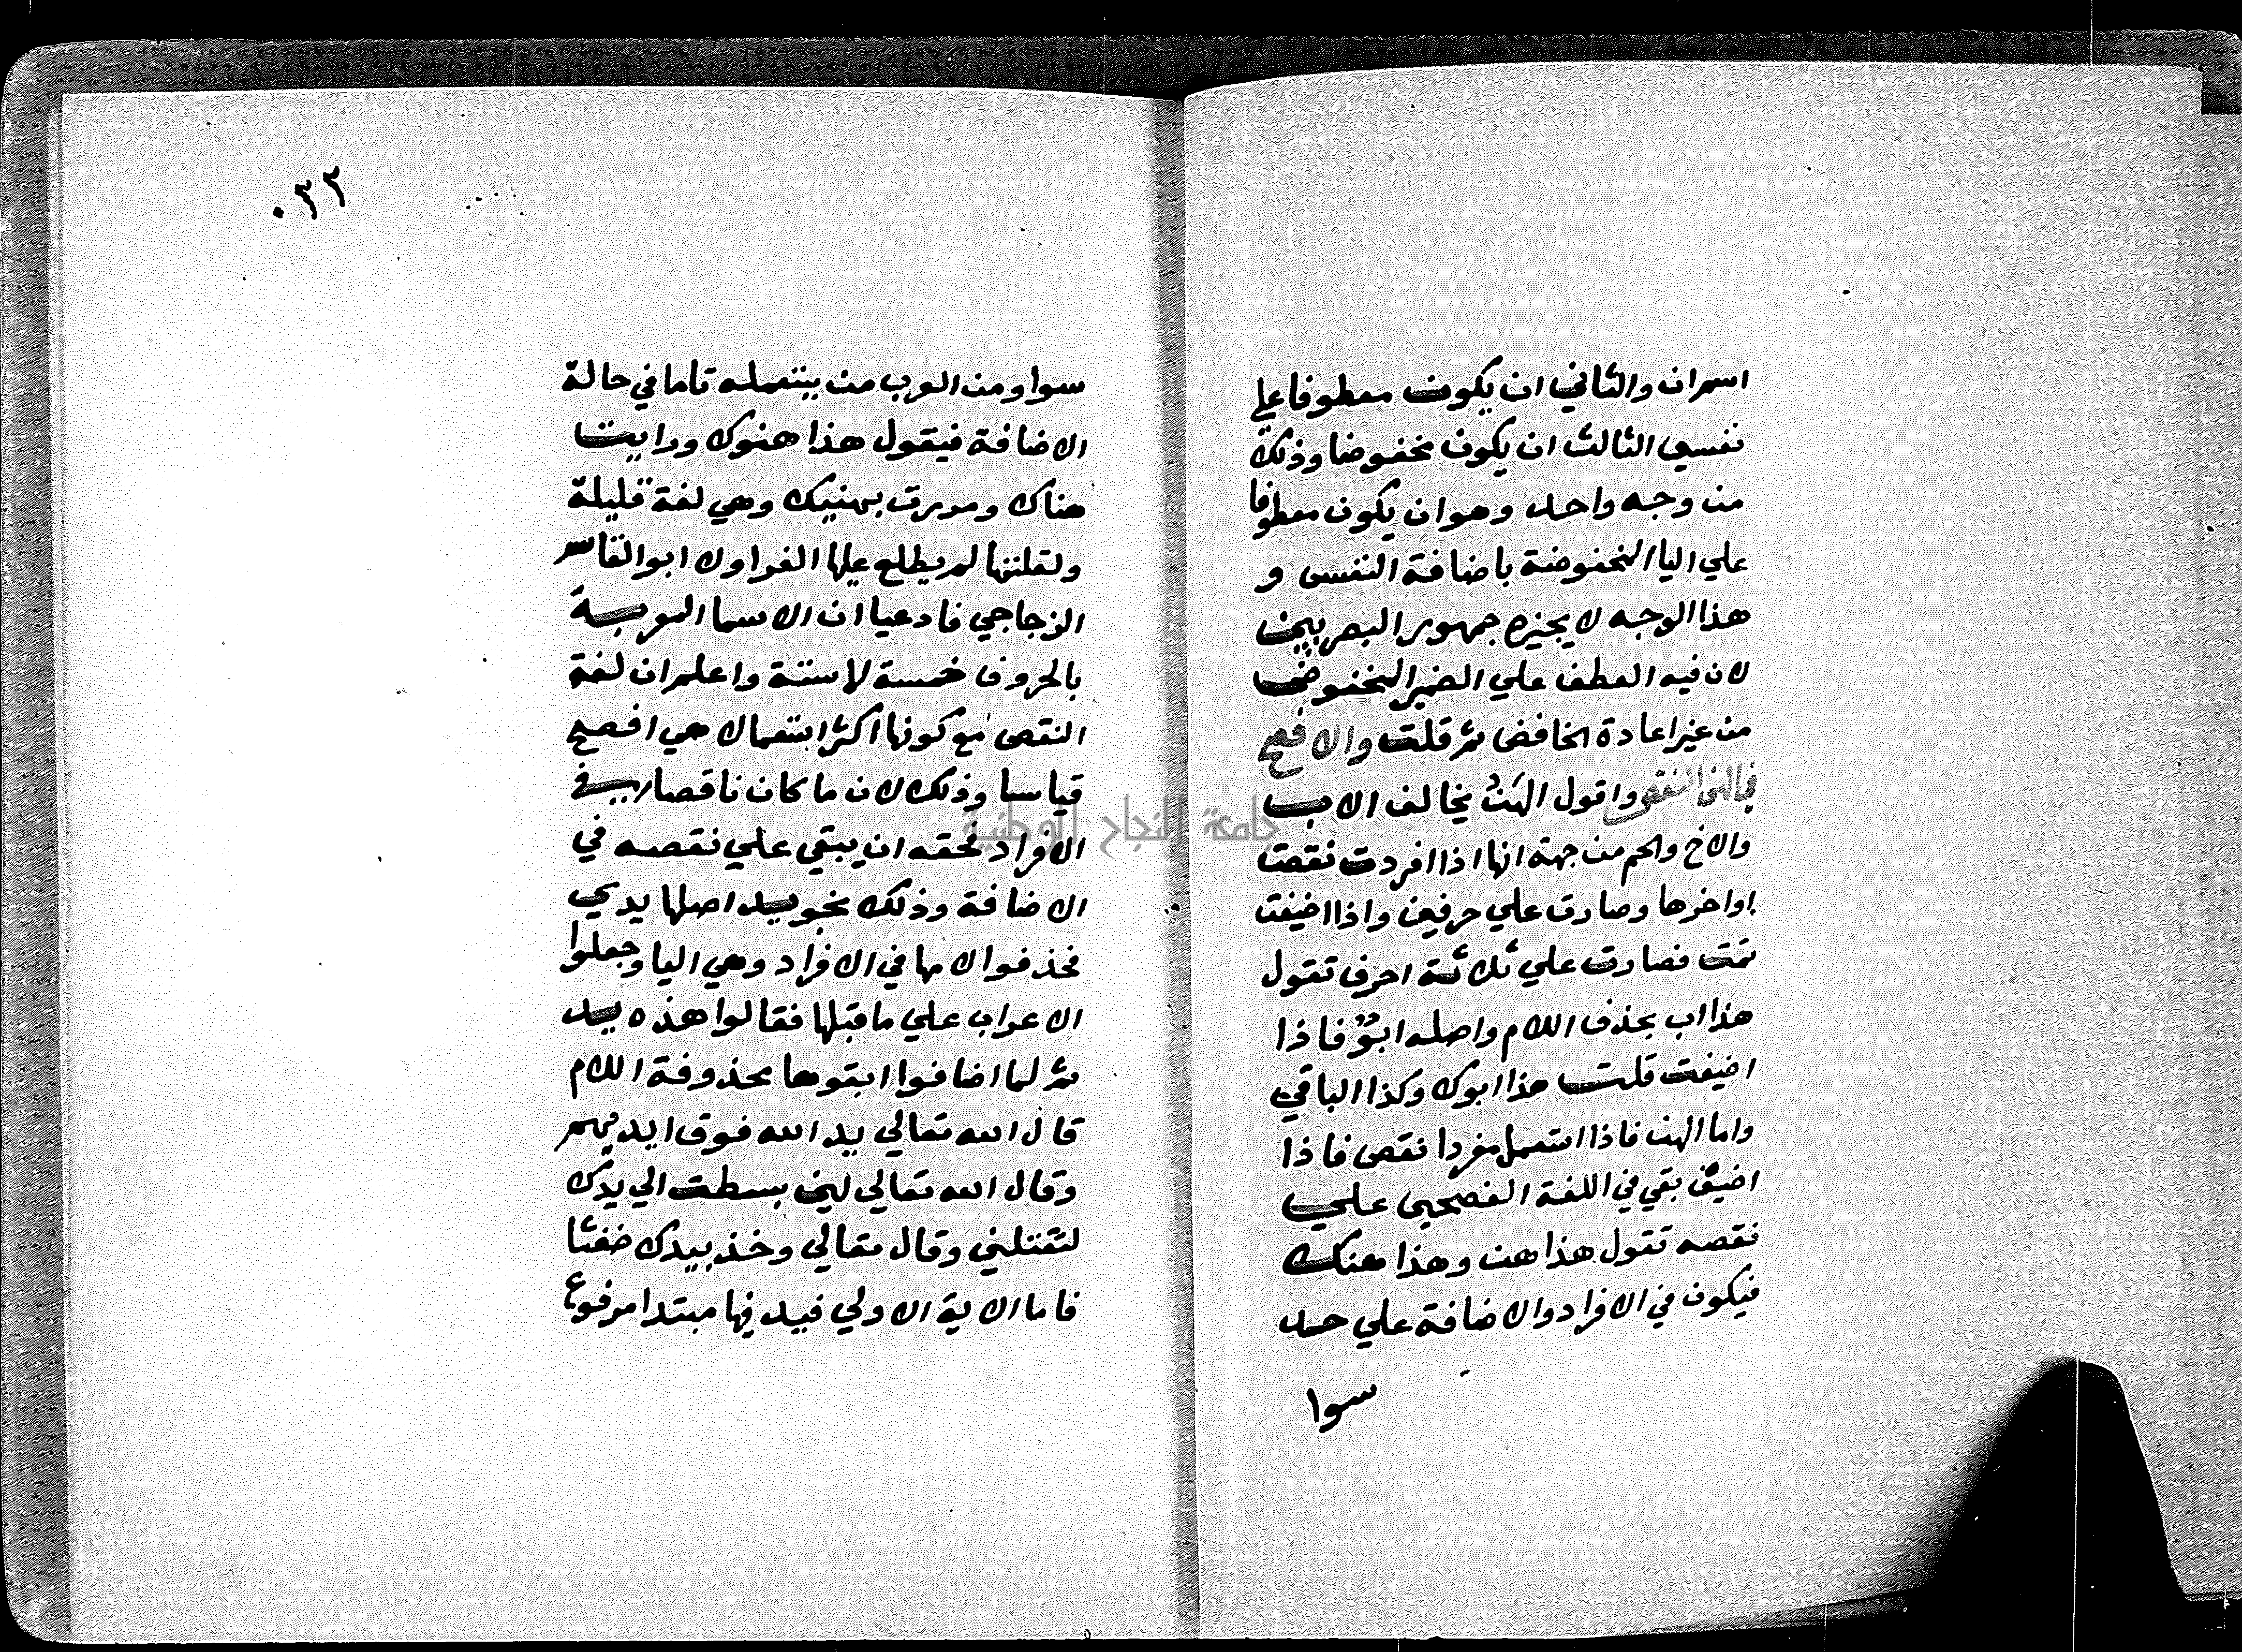 اسمران والثاني ان يكون معطوفا علي
نفسي الثالث ان يكون مخفوضا وذلك
من وجه واحد وهو ان يكون معطوفا
علي اليا المخفوضة باضافة النفس و
هذا الوجه لا يجيزه جمهور البصريين
لان فيه العطف علي الضمير المخفوض
من غير اعادة الخافض ثم قلت والافصح
في الهن النقص واقول الهَنُ يخالف الاب
والاخ والحم من جهة انها اذا افردت نقصت
اواخرها وصارت علي حرفين واذا اضيفت
تمت فصارت علي ثلاثة احرف تقول
هذا اب بحذف اللام واصله ابوٌ فاذا
اضيفت قلت هذا ابوك وكذا الباقي
واما الهن فاذا استعمل مفردا نقص فاذا
اضيف بقي في اللغة الفصحي علي
نقصه تقول هذا هن وهذا هنك
فيكون في الافراد والاضافة علي حد
سوا
٠٣٢
سوا ومن العرب من يستعمله تاما في حالة
الاضافة فيقول هذا هنوك ورايت
هناك ومررت بهنيك وهي لغة قليلة
ولقلتها لم يطلع عليها الفرا ولا ابو القاسم
الزجاجي فادعيا ان الاسما المعربة
بالحروف خمسة لا ستة واعلم ان لغة
النقص مع كونها اكثر استعمالا هي افصح
قياسا وذلك لان ما كان ناقصا في
الافراد فحقه ان يبقي علي نقصه في
الاضافة وذلك نحو يد اصلها يدي
فحذفوا لامها في الافراد وهي اليا وجعلوا
الاعراب علي ما قبلها فقالوا هذه يد
ثم لما اضافوا ابقوها محذوفة اللام
قال الله تعالي يد الله فوق ايديهم
وقال الله تعالي لين بسطت الي يدك
لتقتلني وقال تعالي وخذ بيدك ضغثا
فاما الاية الاولي فيد فيها مبتدا مرفوع
جامعة النجاح الوطنية